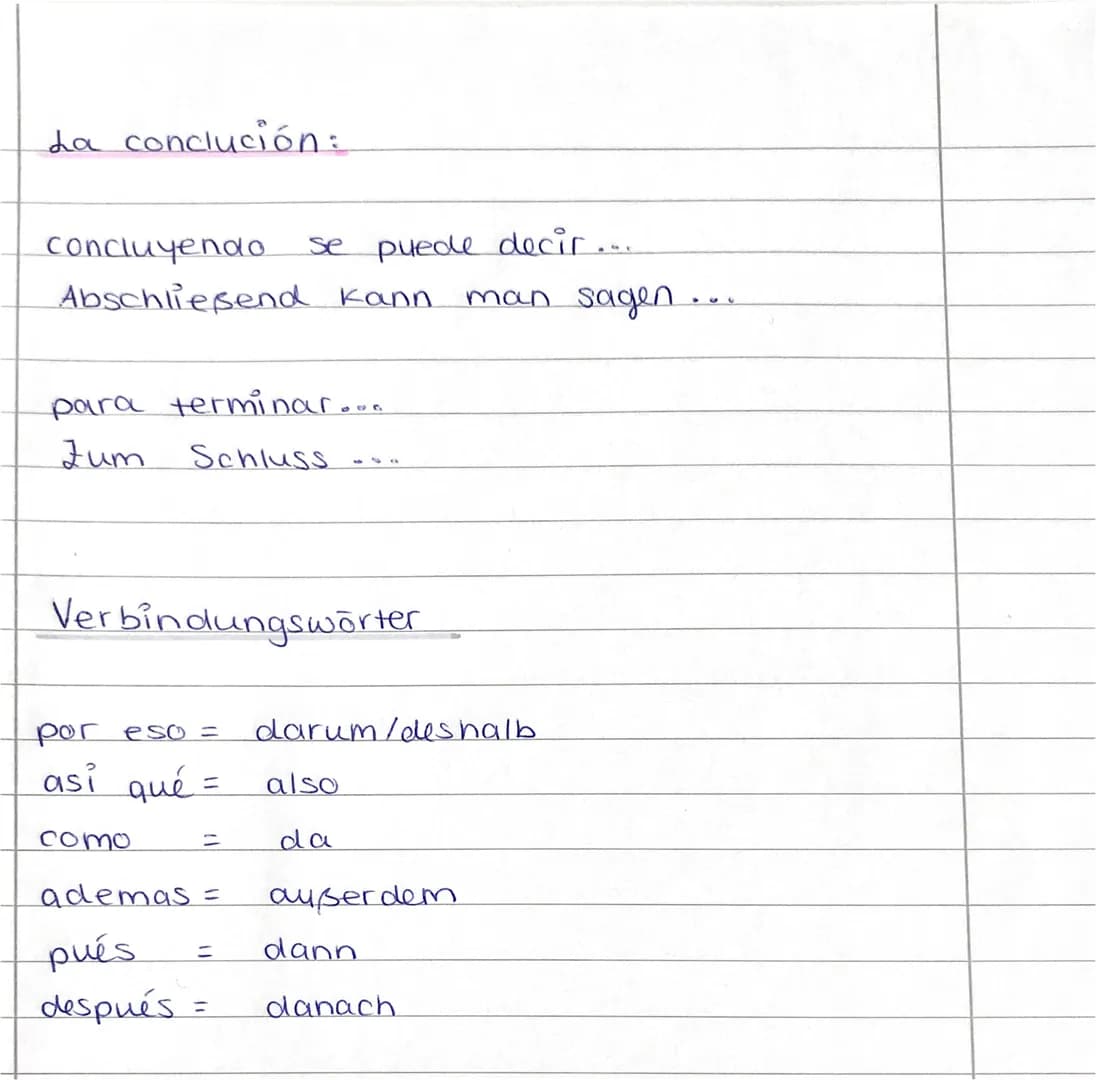 La conclución:
concluyendo se puede decir...
Abschließend kann man sagen ...
para terminar...
Zum Schluss ...
Verbindungswörter
por eso = darum/deshalb
asi qué = also
como = da
ademas = außerdem
pués = dann
después = danach